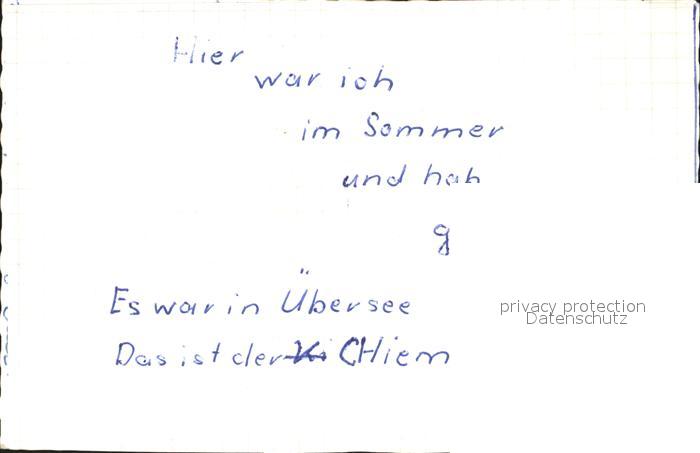 Hier
war ich
im Sommer
und hab
g
Es war in Übersee
Das ist der CHiem
privacy protection
Datenschutz